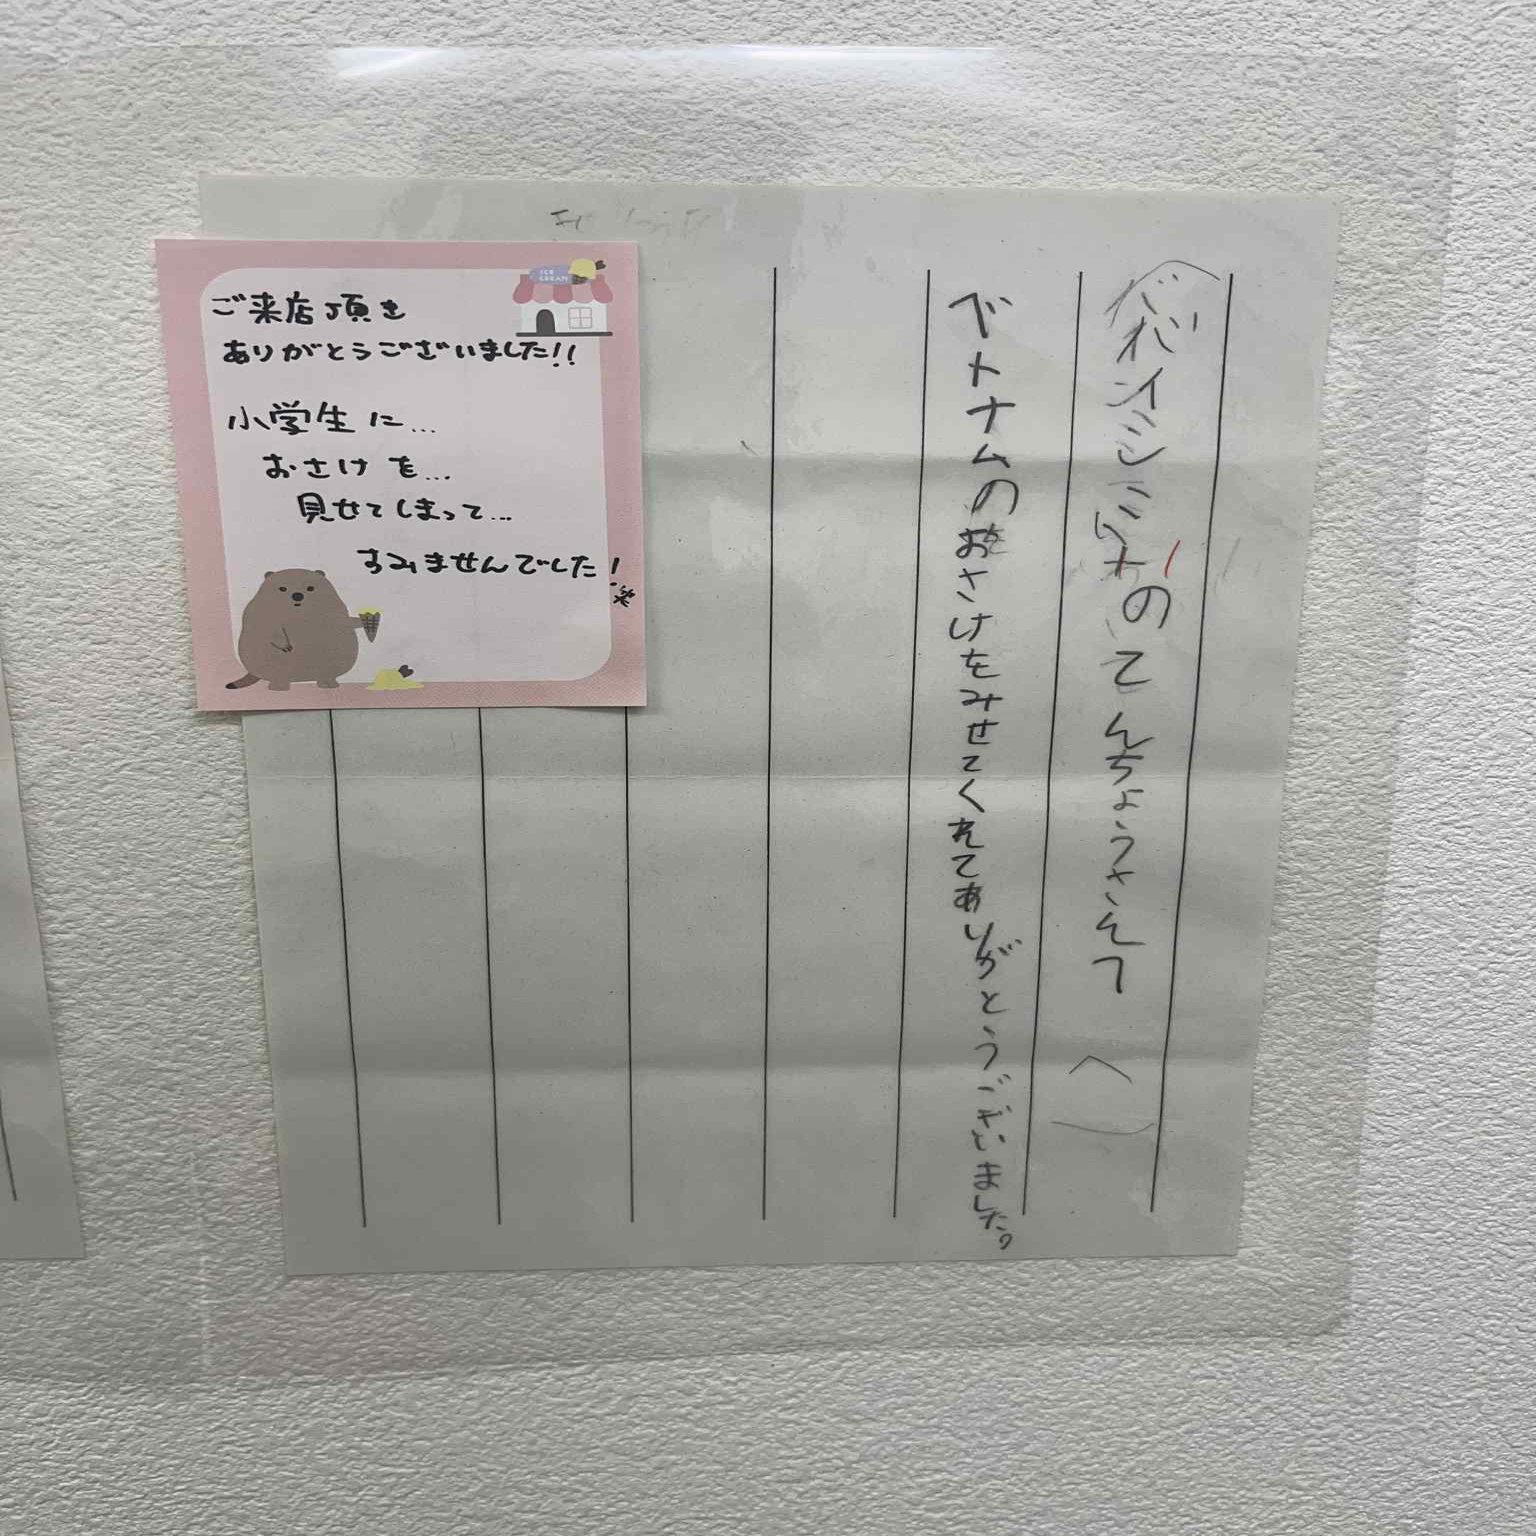 のてんちょうさんへ
ベトナムのおさけをみせてくれてありがとうございました。
ICE CREAM
ご来店頂き
ありがとうございました!!
小学生に…
おさけを…
見せてしまって…
すみませんでした!